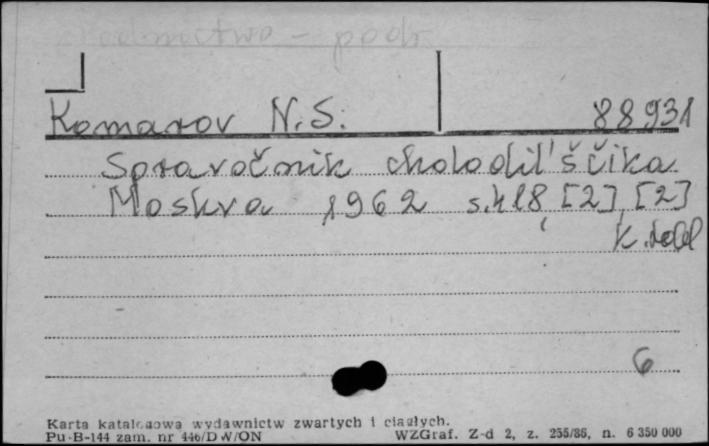 Komarov N.S. 88931
Spravočnik cholodil'ščika
Moskva 1962 s. 418, [2], [2]
k. tabl
6
Karta katalogowa wydawnictw zwartych i ciągłych.
Pu-B-144 zam. nr 446/DW/ON WZGraf. Z-d 2, z. 255/86, n. 6 350 000